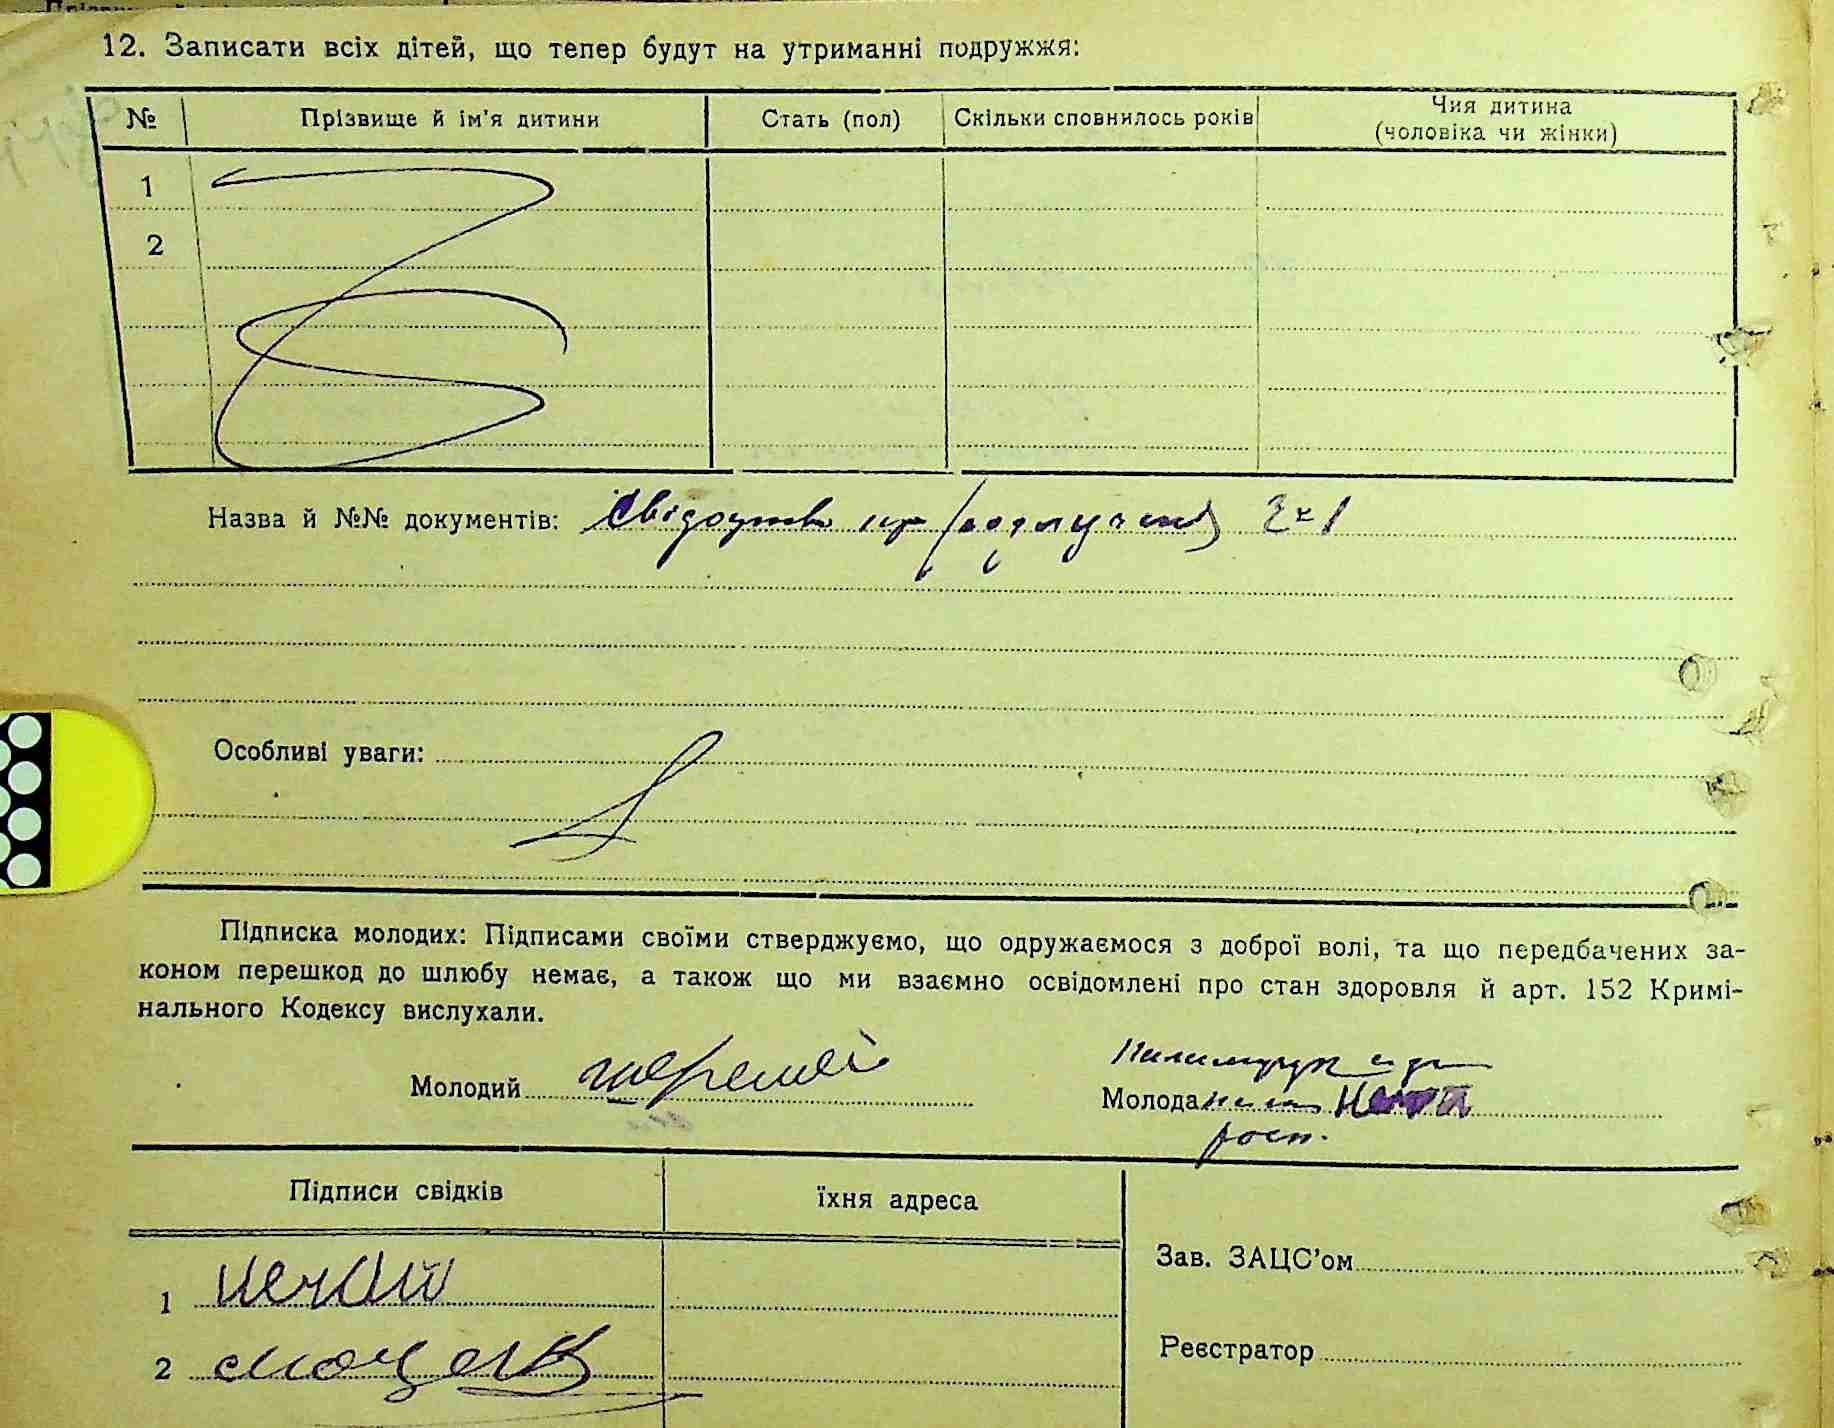 12. Записати всіх дітей, що тепер будут на утриманні подружжя:
№ Прізвище й ім'я дитини Стать (пол) Скільки сповнилось років Чия дитина
(чоловіка чи жінки)
1
2
Назва й №№ документів: Свідоцтво
Особливі уваги:
Підписка молодих: Підписами своїми стверджуємо, що одружаємося з доброї волі, та що передбачених за-
коном перешкод до шлюбу немає, а також що ми взаємно освідомлені про стан здоровля й арт. 152 Кримі-
нального Кодексу вислухали.
Молодий
Молода
Підписи свідків їхня адреса
Зав. ЗАЦС'ом
1
Реєстратор
2